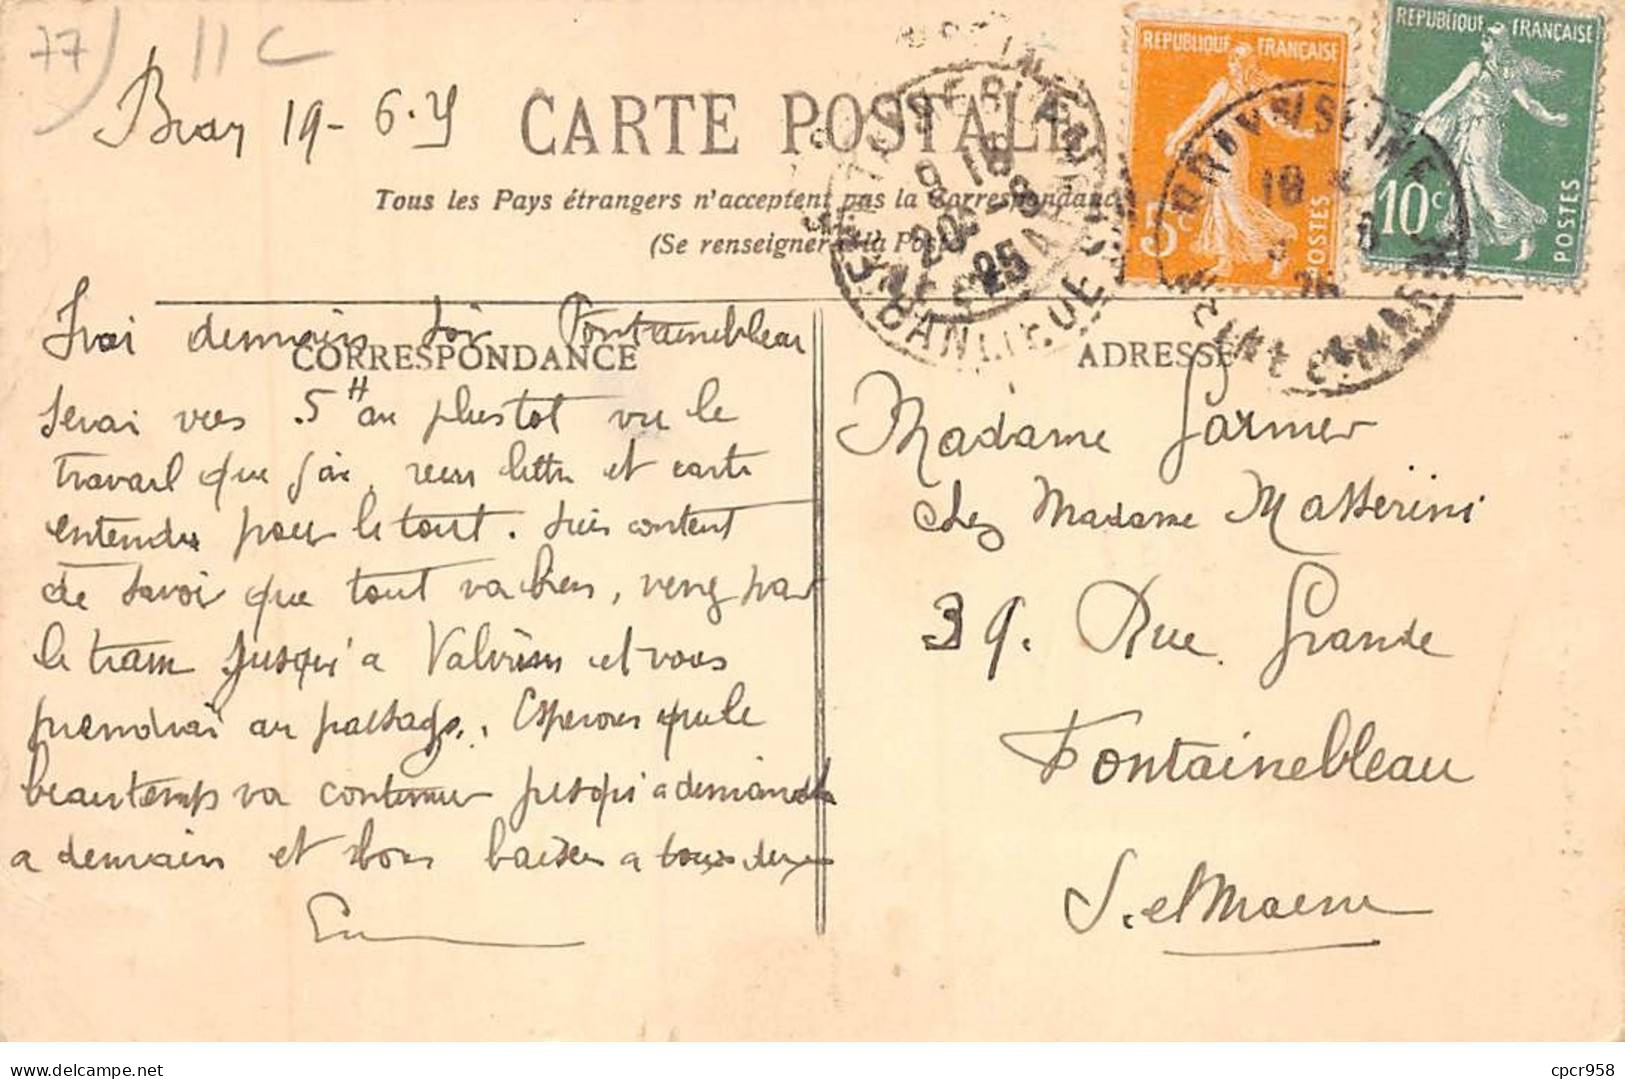 77) 11 C
Bray 19-6.25
CARTE POSTALE
Tous les Pays étrangers n'acceptent pas la Correspondance
(Se renseigner à la Poste
REPUBLIQUE FRANÇAISE
5c POSTES
REPUBLIQUE FRANÇAISE
10c POSTES
BRAY S/SEINE
SEINE ET MARNE
CORRESPONDANCE
Irai demain soir Fontainebleau
serai vers 5H au plustot vu le
travail que j'ai, reçu lettre et carte
entendu pour le tout. suis content
de savoir que tout va bien, venez par
le tram jusqu'à Valvins et vous
prendrai au passage. Esperons que le
beau temps va continuer jusqu'a dimanche
a demain et bons baisers a tous deux
ADRESSE
Madame Garnier
chez Madame Masserini
39. Rue Grande
Fontainebleau
S. et Marne
cpcr958